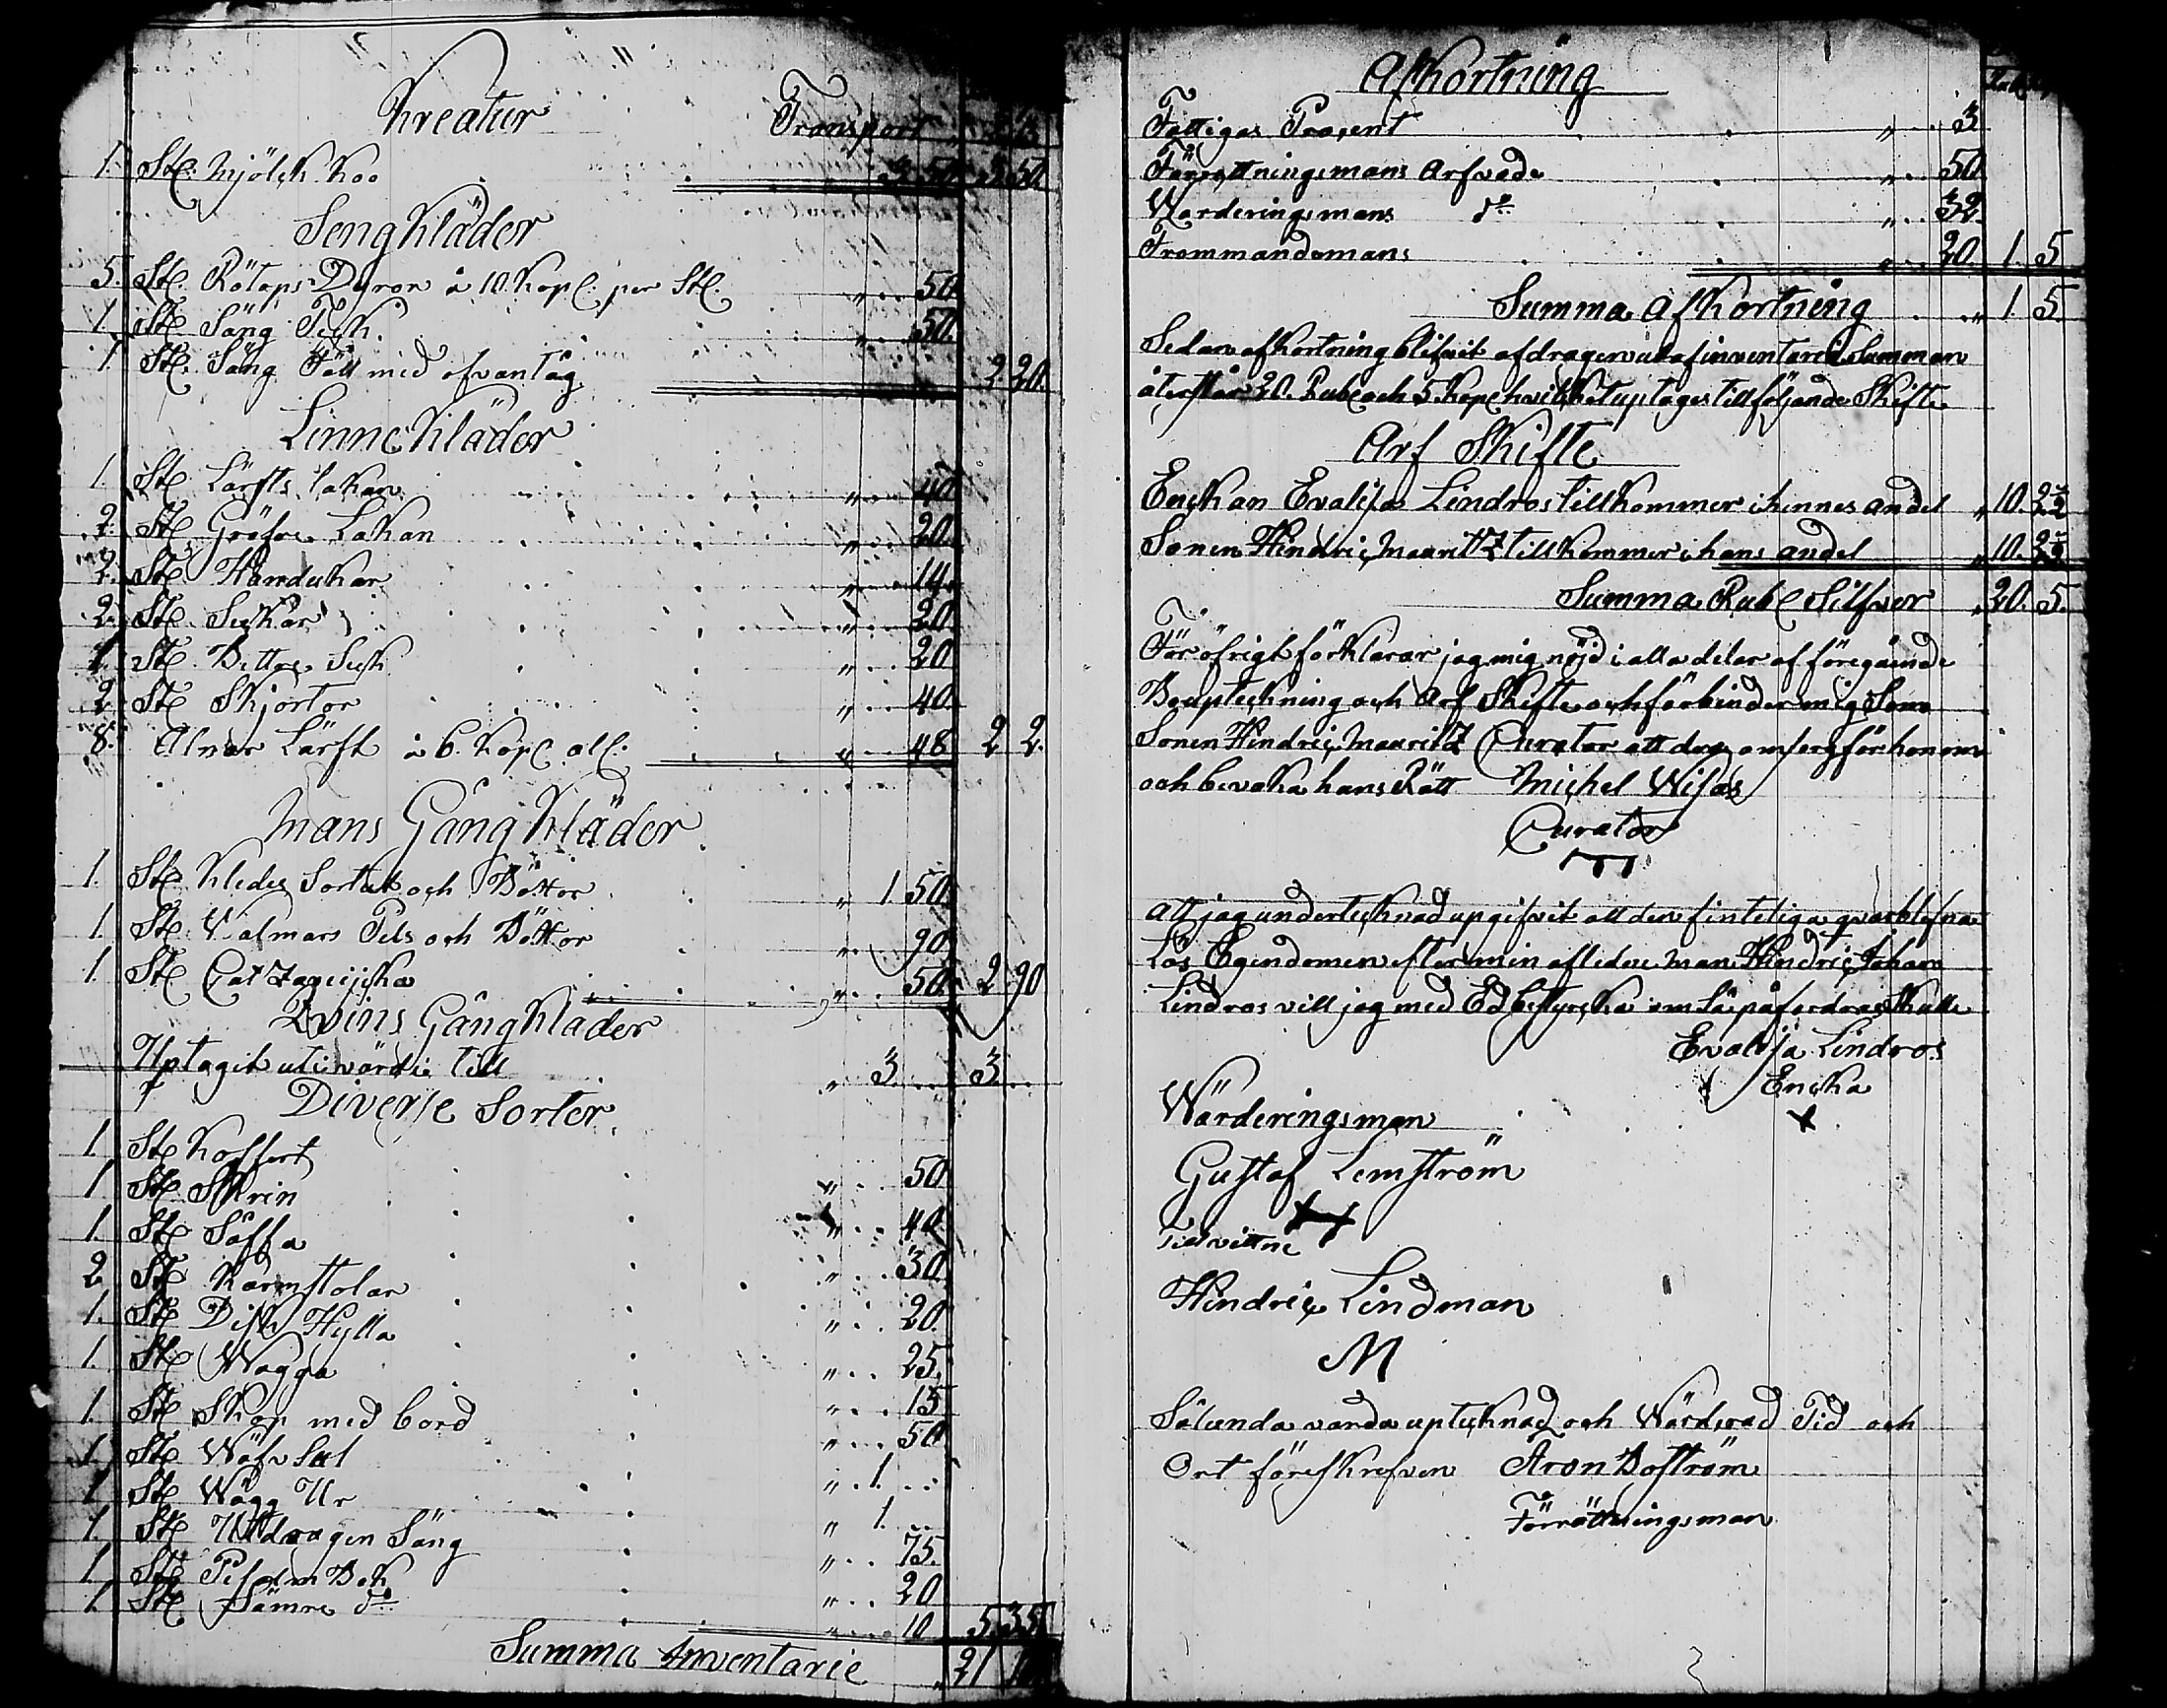 Kreatur Transport
1. St: Mjölck Koo 3 50 3 50
Sengkläder
5. St: Rötaps Dynor à 10. Kop: per St: " 50
1. St: Säng Teck " 50
1. St: Säng Fäll med ofvantåg 2 20
Linnekläder
1. St: Lärfts Lakan " 40
2. St: Gröfre Lakan " 20
2. St: Handukar " 14
2. St: Suckar " 20
1. St: Bettre Suck " 20
2. St: Skjortor " 40
8. Alnar Lärft à 6. Kop: al: " 48 2 2
Mans Gångkläder
1. St: Kledes Sortut och Böxor " 1 50
1. St: Valmars Pels och Böxor " 90
1. St: Catzaguijcka " 50 2 90
Qvins Gångkläder
Uptagit uti värde till " 3 .. 3 ..
Diverse Sorter
1. St: Koffert " 50
1. St: Skrin " 40
1. St: Såffa " 30
2. St: Karmstolar " 20
1. St: Disk Hylla " 25
1. St: Wagga " 15
1. St: Skåp med bord " 50
1. St: Wäfv Stol " 1 ..
1. St: Wägg Ur " 1 ..
1. St: Utdragen Säng " 75
1. St: Psalm Bok " 20
1. St: Sämre do " 10 5 35
Summa Inventarie 21 10
Afkortning
Fattigas Procent " 3
Förrättningsmans Arfvode " 50
Värderingsmans do " 32
Frommandemans " 20 1. 5
Summa Afkortning " 1. 5
Sedan afkortning blifvit afdragen utaf inventarie Summan
återstår 20. Rubel och 5. Kop: hvilket uptages till följande Skifte
Arf Skifte
Enckan Evalisa Lindros tillkommer i hennes andel " 10. 2½
Sonen Hindric Mauritz tillkommer i hans andel " 10. 2½
Summa Rubel Silfver " 20. 5.
För öfrigt förklarar jag mig nöjd i alla delar af föregående
Bouptekning och Arf Skifte och förbinder mig Som
Sonen Hindric Mauritz Curator att dra omsorg för honom
och bevaka hans Rätt Michel Wisas
Curator
Att jag undertecknad upgifvit all den fintliga qvarblefna
Lös Egendomen efter min aflidne man Hindric Johan
Lindros vill jag med Ed bestyrcka om Så påfordras Skulle
Evalisa Lindros
Encka
Wärderingsman
Gustaf Lemström
Till vittne
Hindric Lindman
M
Sålunda varda uptecknad och Wärderad Tid och
Ort föreskrefven Aron Boström
Förrättningsman